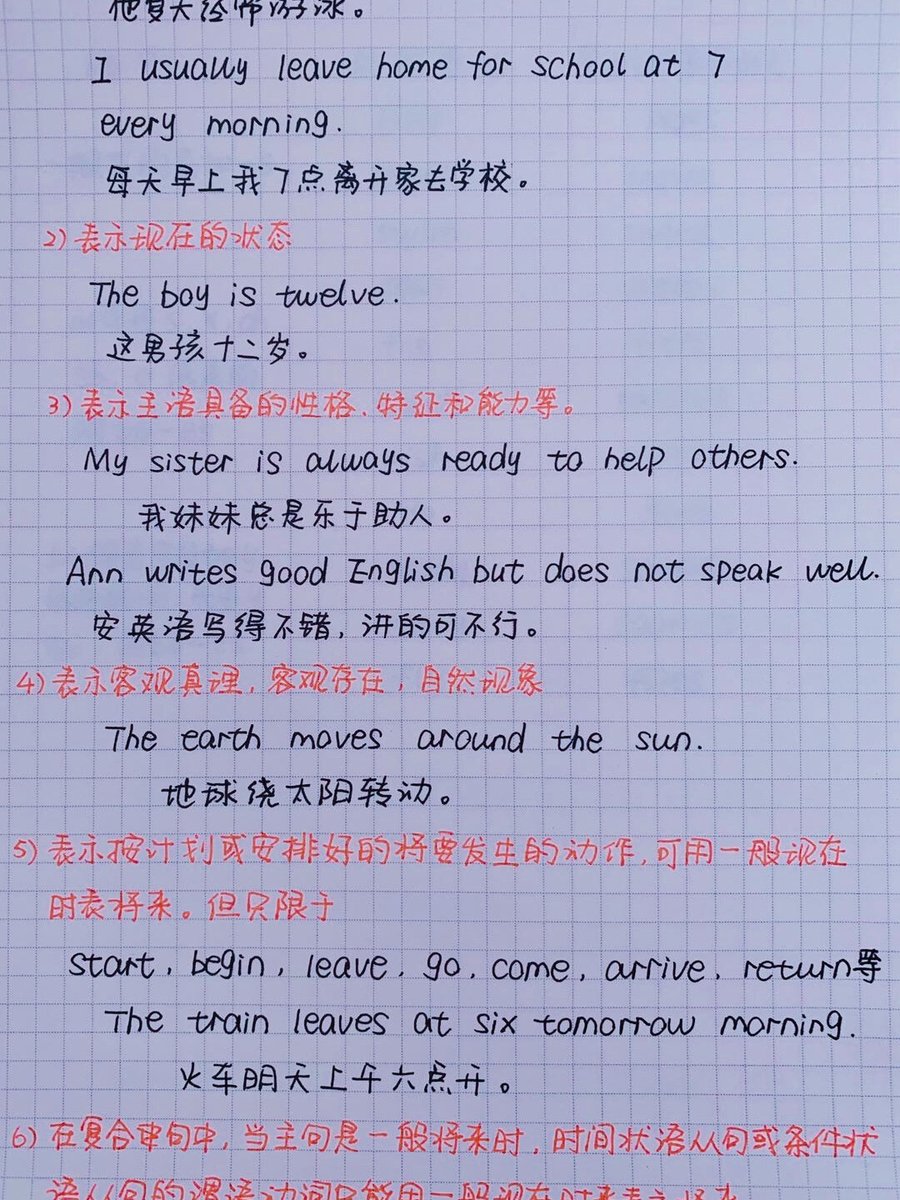 他夏天经常游泳。
I usually leave home for school at 7
every morning.
每天早上我7点离开家去学校。
2) 表示现在的状态
The boy is twelve.
这男孩十二岁。
3) 表示主语具备的性格、特征和能力等。
My sister is always ready to help others.
我妹妹总是乐于助人。
Ann writes good English but does not speak well.
安英语写得不错，讲的可不行。
4) 表示客观真理，客观存在，自然现象
The earth moves around the sun.
地球绕太阳转动。
5) 表示按计划或安排好的将要发生的动作，可用一般现在
时表将来。但只限于
start, begin, leave, go, come, arrive, return等
The train leaves at six tomorrow morning.
火车明天上午六点开。
6) 在复合句中，当主句是一般将来时，时间状语从句或条件状
语从句的谓语动词只能用一般现在时来表示将来